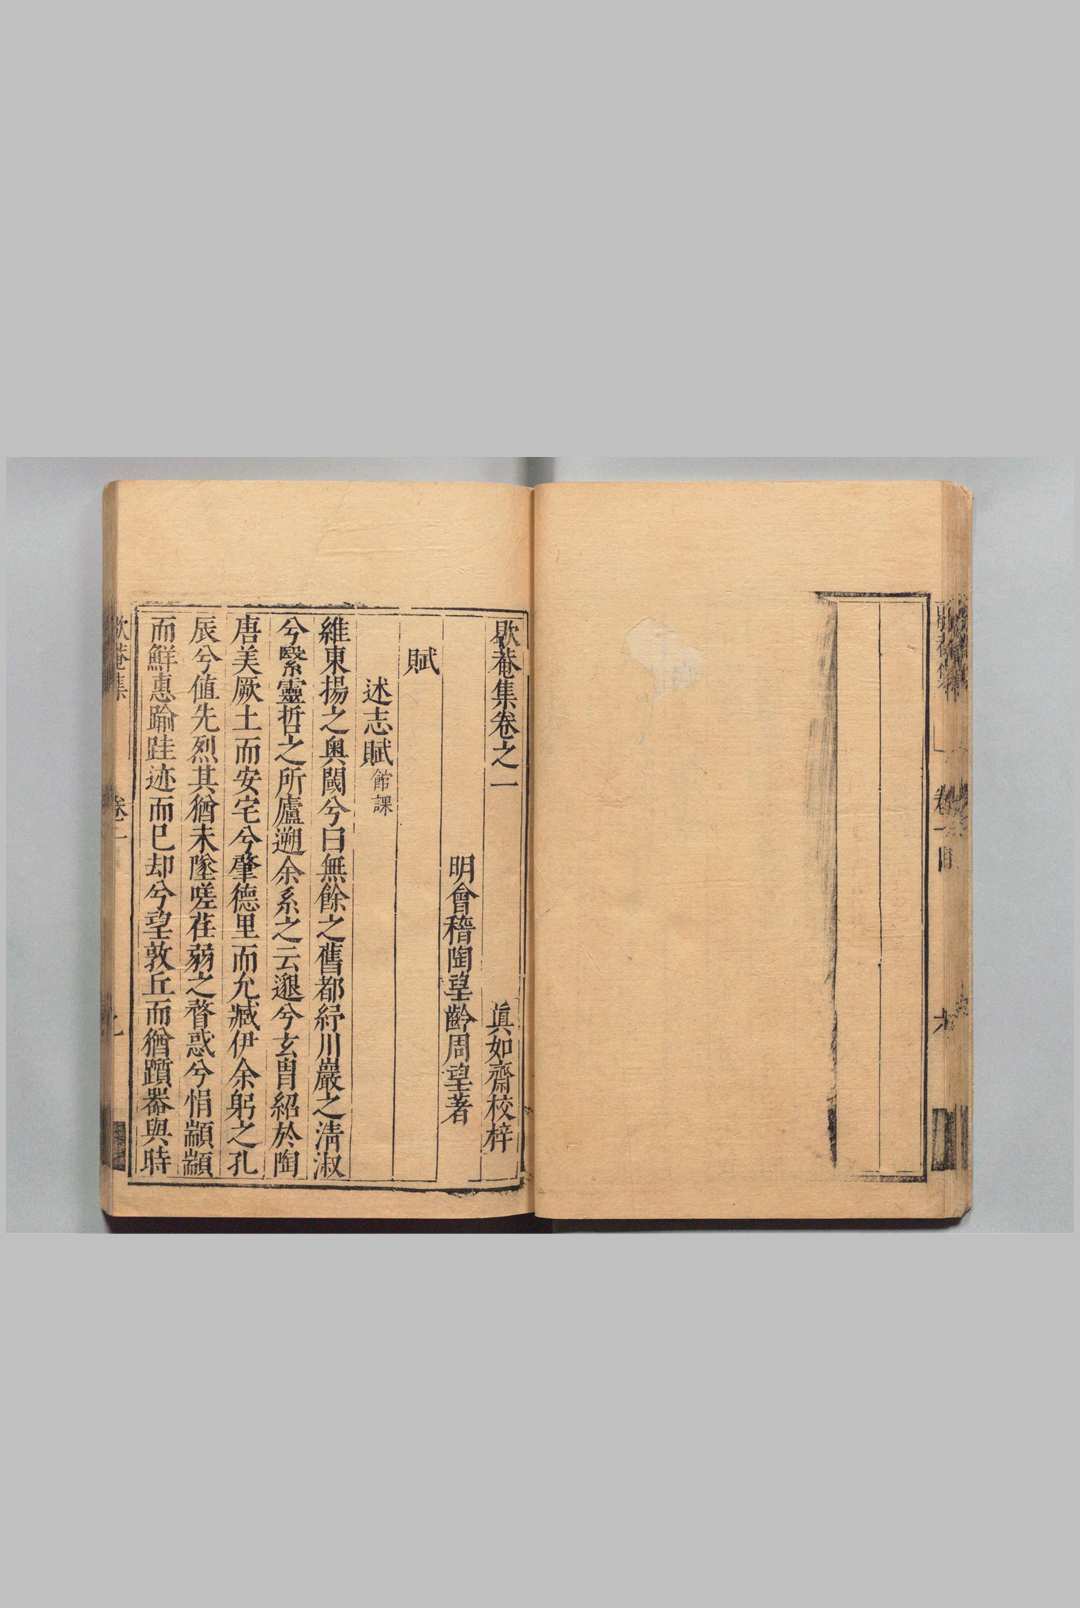 歇菴集卷之一　眞如齋校梓
明會稽陶望齡周望著
賦
述志賦館課
維東揚之奧閾兮曰無餘之舊都紓川巖之淸淑
兮繄靈哲之所廬遡余系之云邈兮玄胄紹於陶
唐美厥土而安宅兮肇德里而允臧伊余躬之孔
辰兮値先烈其猶未墜嗟荏弱之瞀惑兮悁顓顓
而鮮惠踰跬迹而已却兮望敦丘而猶躓器與時
歇菴集
卷一